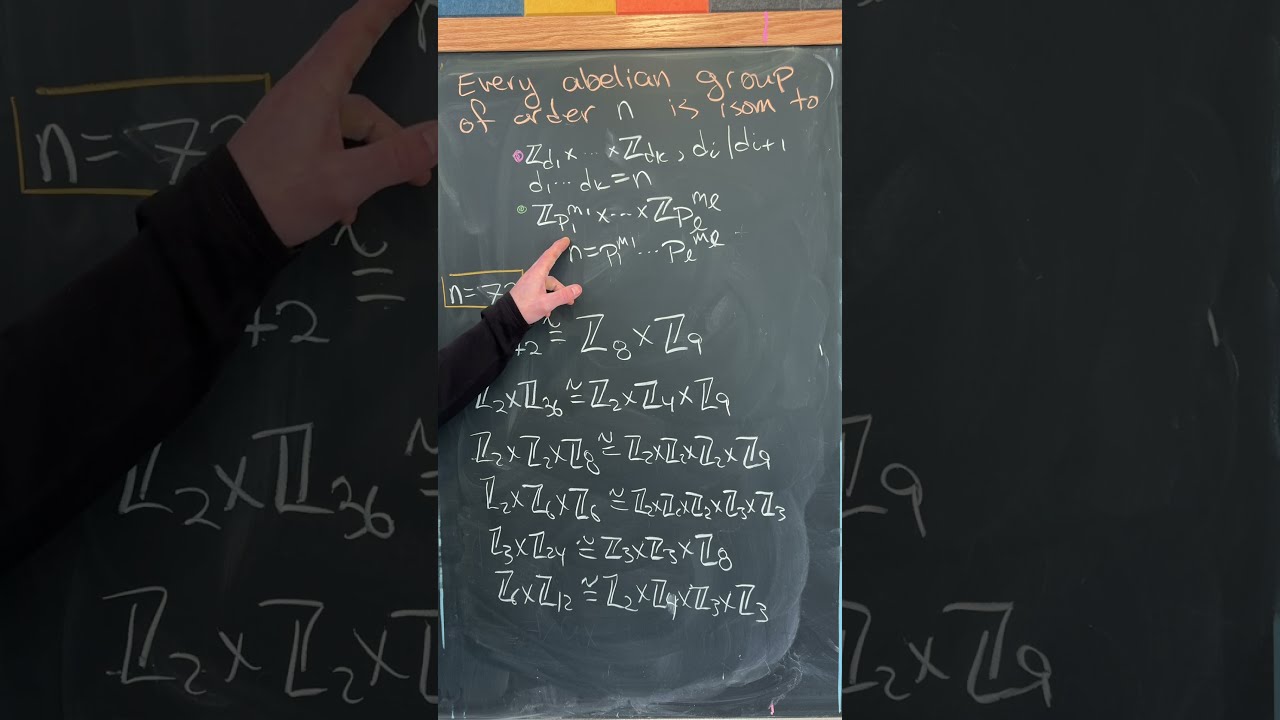 Every abelian group
of order n is isom to
ℤ_{d_1} × ⋯ × ℤ_{d_k}, d_i | d_{i+1}
d_1 ⋯ d_k = n
ℤ_{p_1^{m_1}} × ⋯ × ℤ_{p_ℓ^{m_ℓ}}
n = p_1^{m_1} ⋯ p_ℓ^{m_ℓ}
n = 72
≅ ℤ_8 × ℤ_9
ℤ_2 × ℤ_{36} ≅ ℤ_2 × ℤ_4 × ℤ_9
ℤ_2 × ℤ_2 × ℤ_8 ≅ ℤ_2 × ℤ_2 × ℤ_2 × ℤ_9
ℤ_2 × ℤ_6 × ℤ_6 ≅ ℤ_2 × ℤ_2 × ℤ_2 × ℤ_3 × ℤ_3
ℤ_3 × ℤ_{24} ≅ ℤ_3 × ℤ_3 × ℤ_8
ℤ_6 × ℤ_{12} ≅ ℤ_2 × ℤ_4 × ℤ_3 × ℤ_3